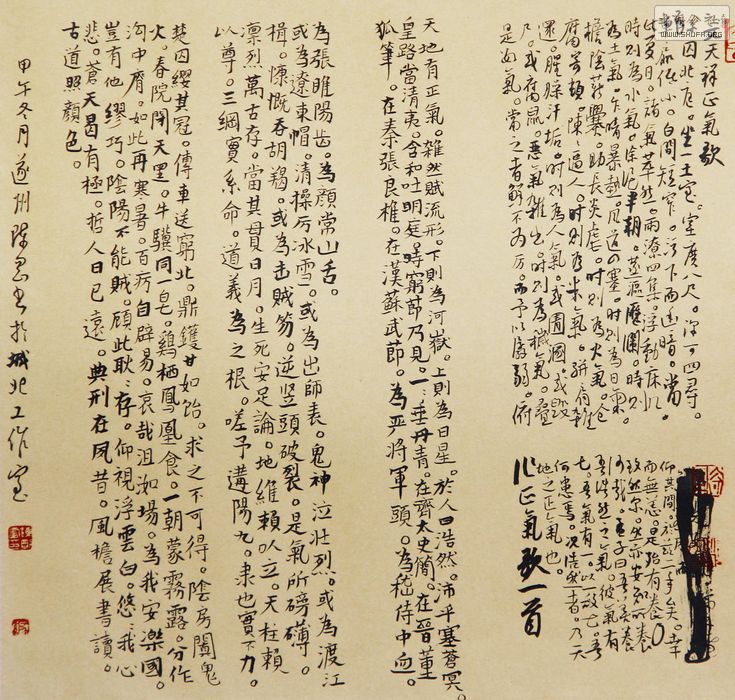 文天祥正氣歌
余囚北庭。坐一土室。室廣八尺。深可四尋。
單扉低小。白間短窄。汙下而幽暗。當
此夏日。諸氣萃然。雨潦四集。浮動床几。
時則為水氣。塗泥半朝。蒸漚歷瀾。時則
為土氣。乍晴暴熱。風道四塞。時則為日氣。
檐陰薪爨。助長炎虐。時則為火氣。倉
腐寄頓。陳陳逼人。時則為米氣。駢肩雜
遝。腥臊汗垢。時則為人氣。或圊溷。或毀
尸。或腐鼠。惡氣雜出。時則為穢氣。疊
是如氣。當之者鮮不為厲。而予以孱弱。俯
仰其間於茲二年矣。幸
而無恙。是殆有養
致然尔。然亦安知所養
何哉。孟子曰吾善養
吾浩然之氣。彼氣有
七。吾氣有一。以一敵七。吾
何患焉。況浩然者。乃天
地之正氣也。
作正氣歌一首
天地有正氣。雜然賦流形。下則為河嶽。上則為日星。於人曰浩然。沛乎塞蒼冥。
皇路當清夷。含和吐明庭。時窮節乃見。一一垂丹青。在齊太史簡。在晉董
狐筆。在秦張良椎。在漢蘇武節。為嚴將軍頭。為嵇侍中血。
為張睢陽齒。為顏常山舌。
或為遼東帽。清操厉冰雪。或為出師表。鬼神泣壯烈。或為渡江
楫。慷慨吞胡羯。或為击賊笏。逆竖頭破裂。是氣所磅礴。
凛烈萬古存。當其貫日月。生死安足論。地維賴以立。天柱賴
以尊。三綱實系命。道義為之根。嗟予遘陽九。隶也實不力。
楚囚纓其冠。傳車送窮北。鼎鑊甘如飴。求之不可得。陰房闐鬼
火。春院閉天黑。牛驥同一皂。鷄栖鳳凰食。一朝蒙霧露。分作
沟中瘠。如此再寒暑。百疠自辟易。哀哉沮洳場。為我安樂國。
豈有他繆巧。陰陽不能賊。顾此耿耿存。仰視浮雲白。悠悠我心
悲。蒼天曷有極。哲人日已遠。典刑在夙昔。風檐展書讀。
古道照顏色。
甲午冬月遂州陳書於城北工作室
WWW.SHUFA.ORG